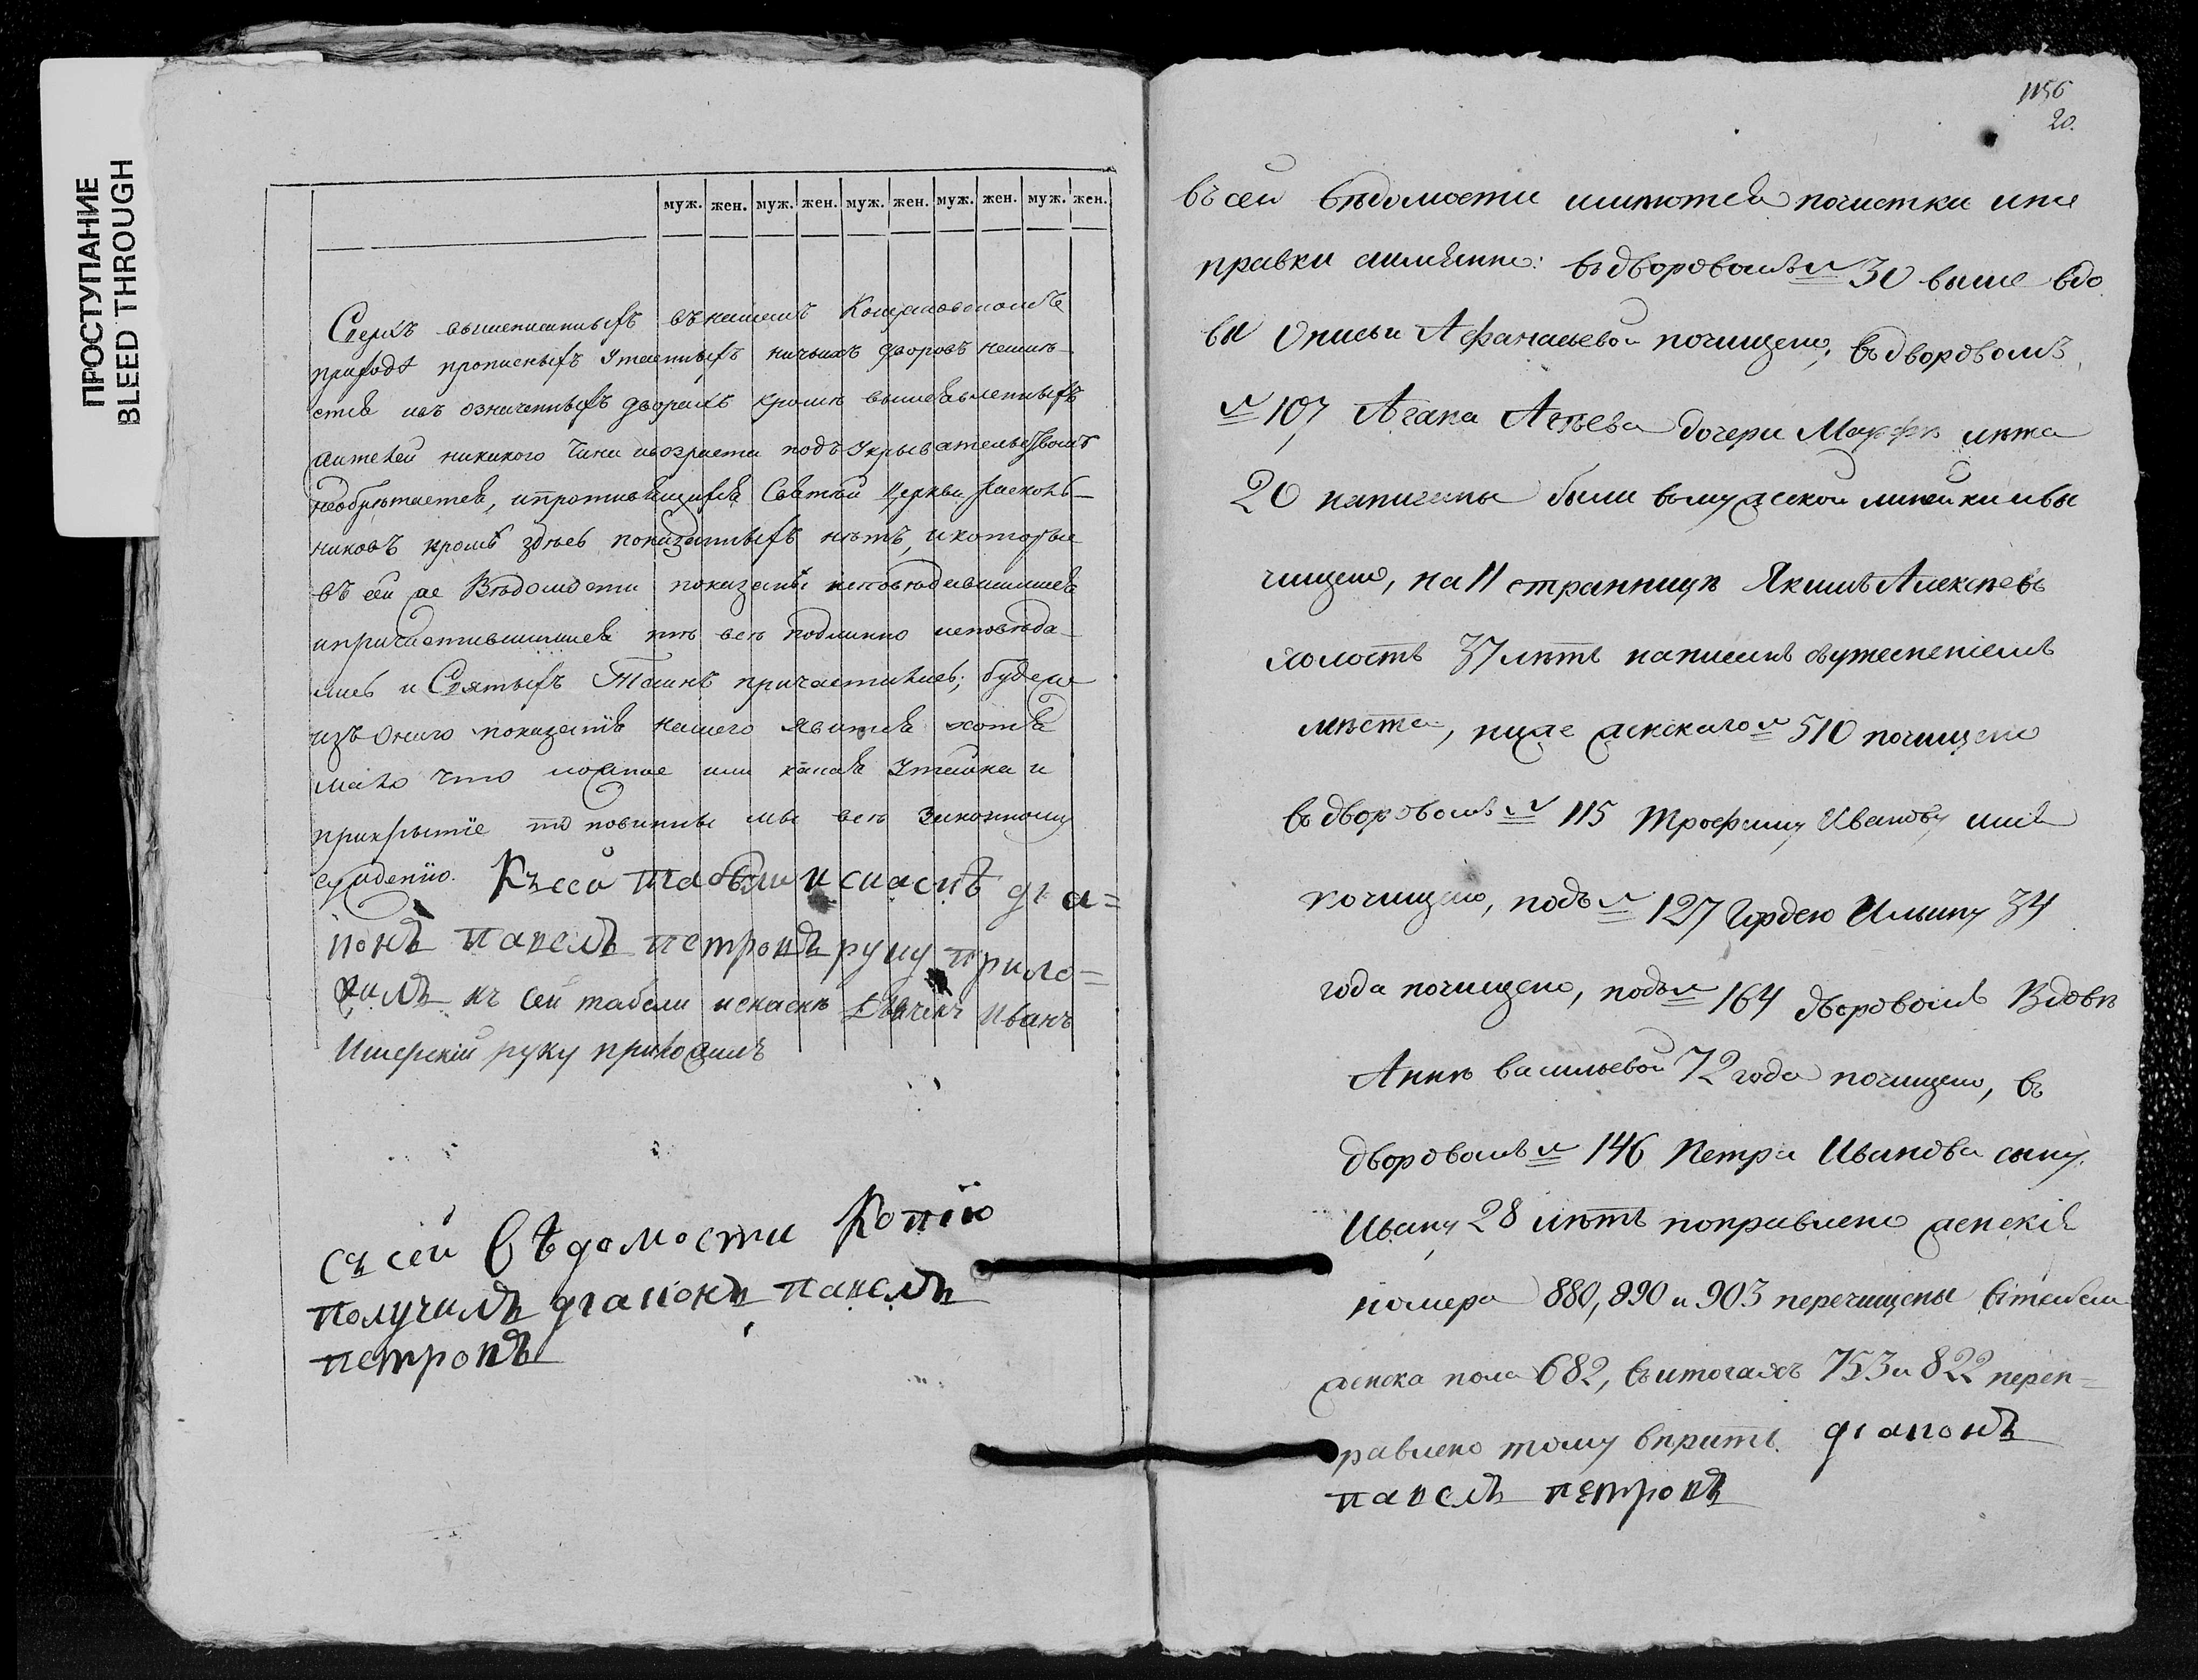 ПРОСТУПАНИЕ
BLEED THROUGH
муж. жен. муж. жен. муж. жен. муж. жен. муж. жен.
Сверхъ вышеписанныхъ въ нашемъ
приходѣ прописныхъ утаенныхъ ничьихъ дворовъ неимѣ-
ется ивъ означенныхъ дворахъ кромѣ вышеявленныхъ
жителей никакого чина ивозраста подъ укрывательствомъ
необрѣтается, ипротивящихся Святой Церкви раскол-
никовъ кромѣ здѣсь показанныхъ нѣтъ, икоторые
въ сей же Вѣдомости показаны исповѣдавшимися
ипричастившимися тѣ всѣ подлинно исповѣда-
лись и Святыхъ Таинъ причастились; буде же
изъ онаго показанія нашего явится хотя
мало что ложное или какая утайка и
прикрытіе то повинны мы всѣ законному
суждению. Къ сей табели искаскѣ діа=
конъ павелъ петровъ руку прило=
жилъ къ сей табели искаскѣ Дьячекъ Иванъ
руку приложилъ
съ сей вѣдомости копію
получилъ діаконъ павелъ
петровъ
1156
20.
въ сей вѣдомости имѣются почистки ипо
правки аимянно: въ дворовомъ № 30 выше вдо
вы Афанасьевой почищено, въ дворовомъ
№ 107 Агапа дочери Марфѣ лѣта
20 написаны были вмужской линейки ивы
чищено, на 11 странницѣ Якимъ Алексѣевъ
холостъ 37 лѣтъ написанъ сутесненіемъ
мѣста, ниже женскаго № 510 почищено
въ дворовомъ № 115 Трофиму Иванову имя
почищено, подъ № 127 Гордею Ильину 34
года почищено, подъ № 164 дворовомъ Вдовѣ
Аннѣ Васильевой 72 года почищено, въ
дворовомъ № 146 Петра Иванова сыну
Ивану 28 лѣтъ поправлено женскія
номера 880, 890 и 903 перечищены втабели
женска пола 682, въ итогахъ 753 и 822 переп=
равлено тому вѣрить діаконъ
павелъ петровъ